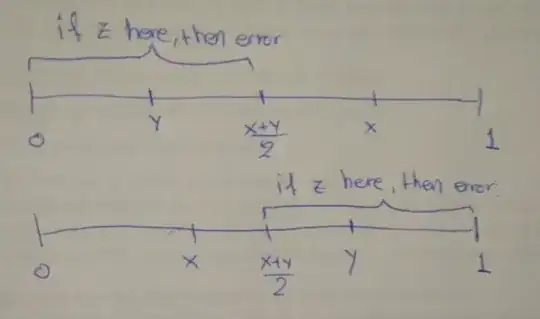 if z here, then error
0 Y x+y/2 x 1
if z here, then error.
0 x x+y/2 y 1